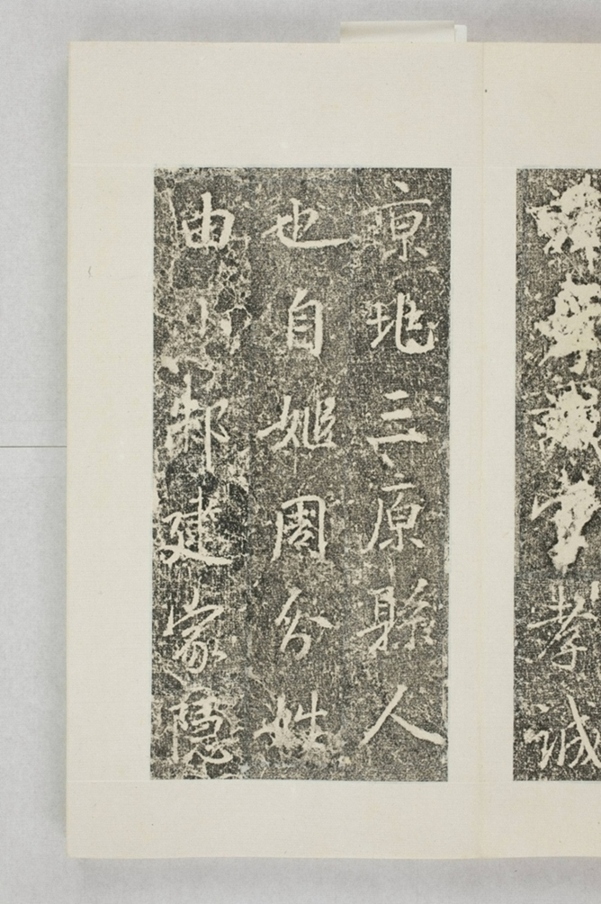 諱
字孝誠
京兆三原縣人
也自姬周分姓
由小邾建家隱